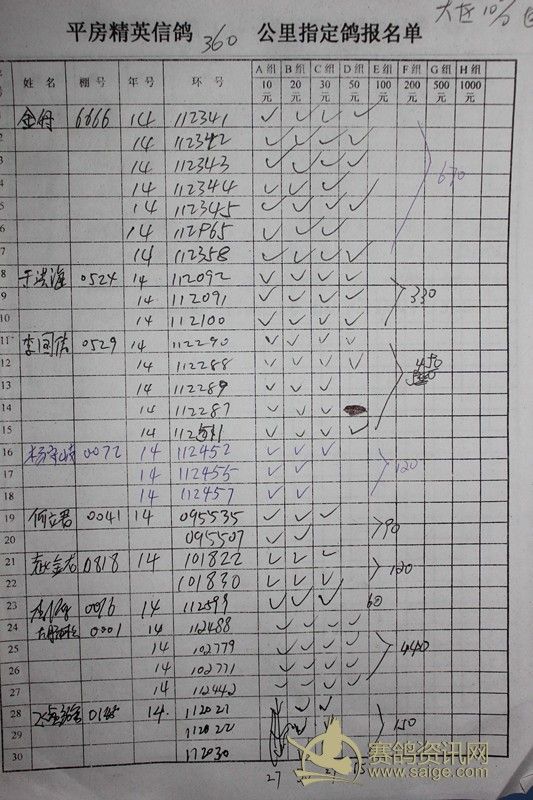 平房精英信鸽 360 公里指定鸽报名单
姓名 棚号 年号 环号 A组 10元 B组 20元 C组 30元 D组 50元 E组 100元 F组 200元 G组 500元 H组 1000元
6666 14 112341 ✓ ✓ ✓ ✓
2 14 112342 ✓ ✓ ✓ ✓
3 14 112343 ✓ ✓ ✓ ✓
4 14 112344 ✓ ✓ ✓ 670
5 14 112345 ✓ ✓ ✓ ✓
6 14 ✓ ✓ ✓
7 14 112358 ✓ ✓ ✓ ✓
8 于洪海 0524 14 112092 ✓ ✓ ✓ ✓
9 14 112091 ✓ ✓ ✓ ✓ 330
10 14 112100 ✓ ✓ ✓ ✓
11 李国 0529 14 112290 ✓ ✓ ✓ ✓
12 14 112288 ✓ ✓ ✓ ✓ 450
13 14 112289 ✓ ✓ ✓
14 14 112287 ✓ ✓ ✓
15 14 ✓ ✓ ✓ ✓
16 杨 0072 14 112452 ✓ ✓ ✓
17 14 112455 ✓ ✓ 120
18 14 112457 ✓ ✓
19 何立君 0041 14 095535 ✓ ✓ ✓
20 095507 ✓ ✓ 90
21 赵金龙 0818 14 101822 ✓ ✓ ✓
22 101830 ✓ ✓ ✓ 120
23 14 112599 ✓ ✓ ✓ 60
24 0001 14 112488 ✓ ✓ ✓ ✓
25 14 102779 ✓ ✓ ✓ ✓ 440
26 14 102771 ✓ ✓ ✓ ✓
27 14 112442 ✓ ✓ ✓ ✓
28 14 112021 ✓ ✓ ✓
29 112022 ✓ ✓ 150
30 112030
27
赛鸽资讯网
www.saige.com